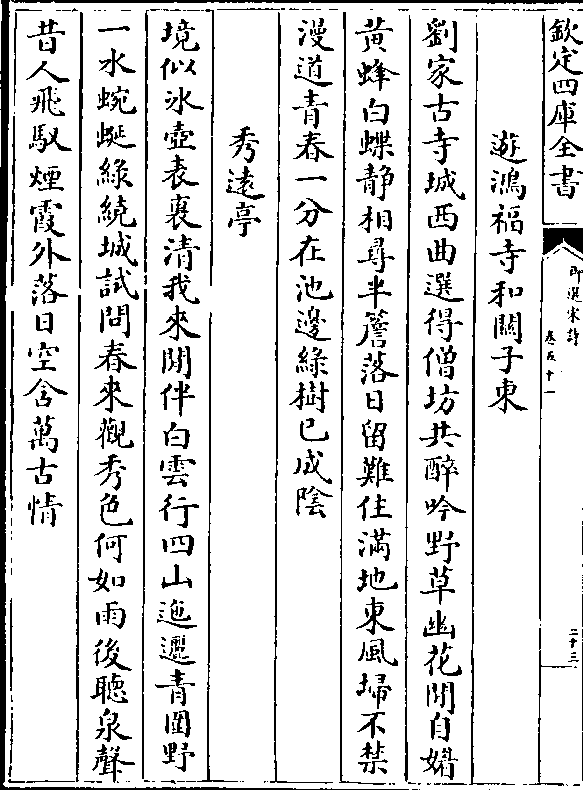 欽定四庫全書
御選宋詩
卷五十一
二十三
遊鴻福寺和關子東
劉家古寺城西曲選得僧坊共醉吟野草幽花閒自媚
黃蜂白蝶静相尋半簷落日留難住滿地東風埽不禁
漫道青春一分在池邊綠樹已成陰
秀遠亭
境似冰壺表裏清我來閒伴白雲行四山迤邐青圍野
一水蜿蜒綠繞城試問春來觀秀色何如雨後聽泉聲
昔人飛馭煙霞外落日空含萬古情